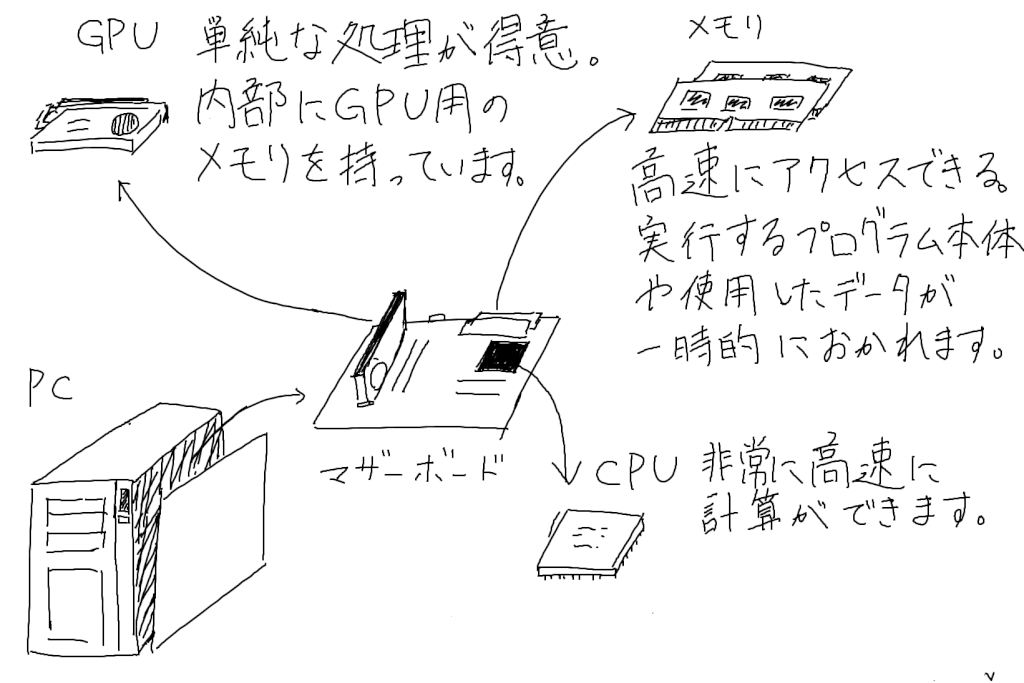 GPU 単純な処理が得意。
内部にGPU用の
メモリを持っています。
メモリ
高速にアクセスできる。
実行するプログラム本体
や使用したデータが
一時的におかれます。
PC
マザーボード
CPU 非常に高速に
計算ができます。